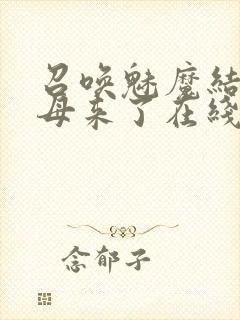 召唤魅魔结
母来了在线
念郁子